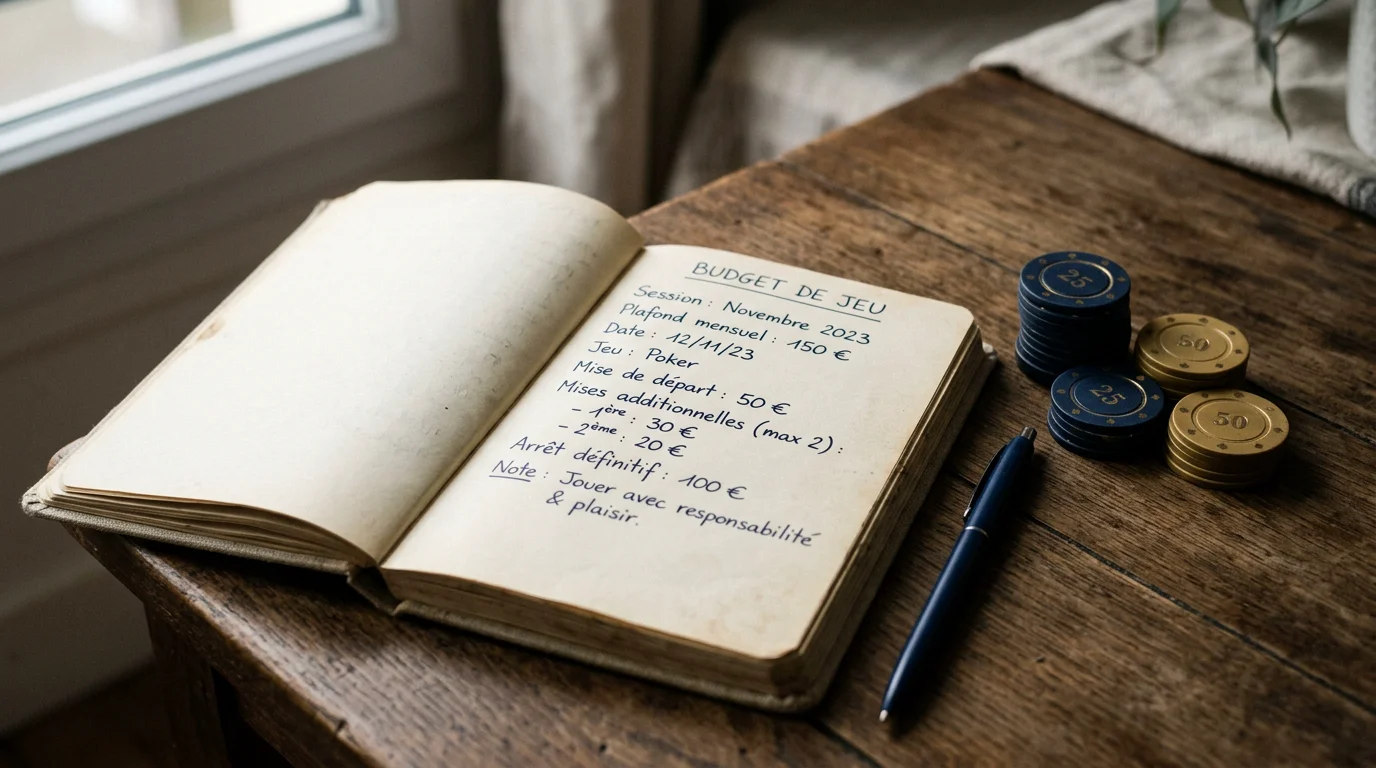 BUDGET DE JEU
Session : Novembre 2023
Plafond mensuel : 150 €
Date : 12/11/23
Jeu : Poker
Mise de départ : 50 €
Mises additionnelles (max 2) :
- 1ère : 30 €
- 2ème : 20 €
Arrêt définitif : 100 €
Note : Jouer avec responsabilité
& plaisir.
25
50
25
50